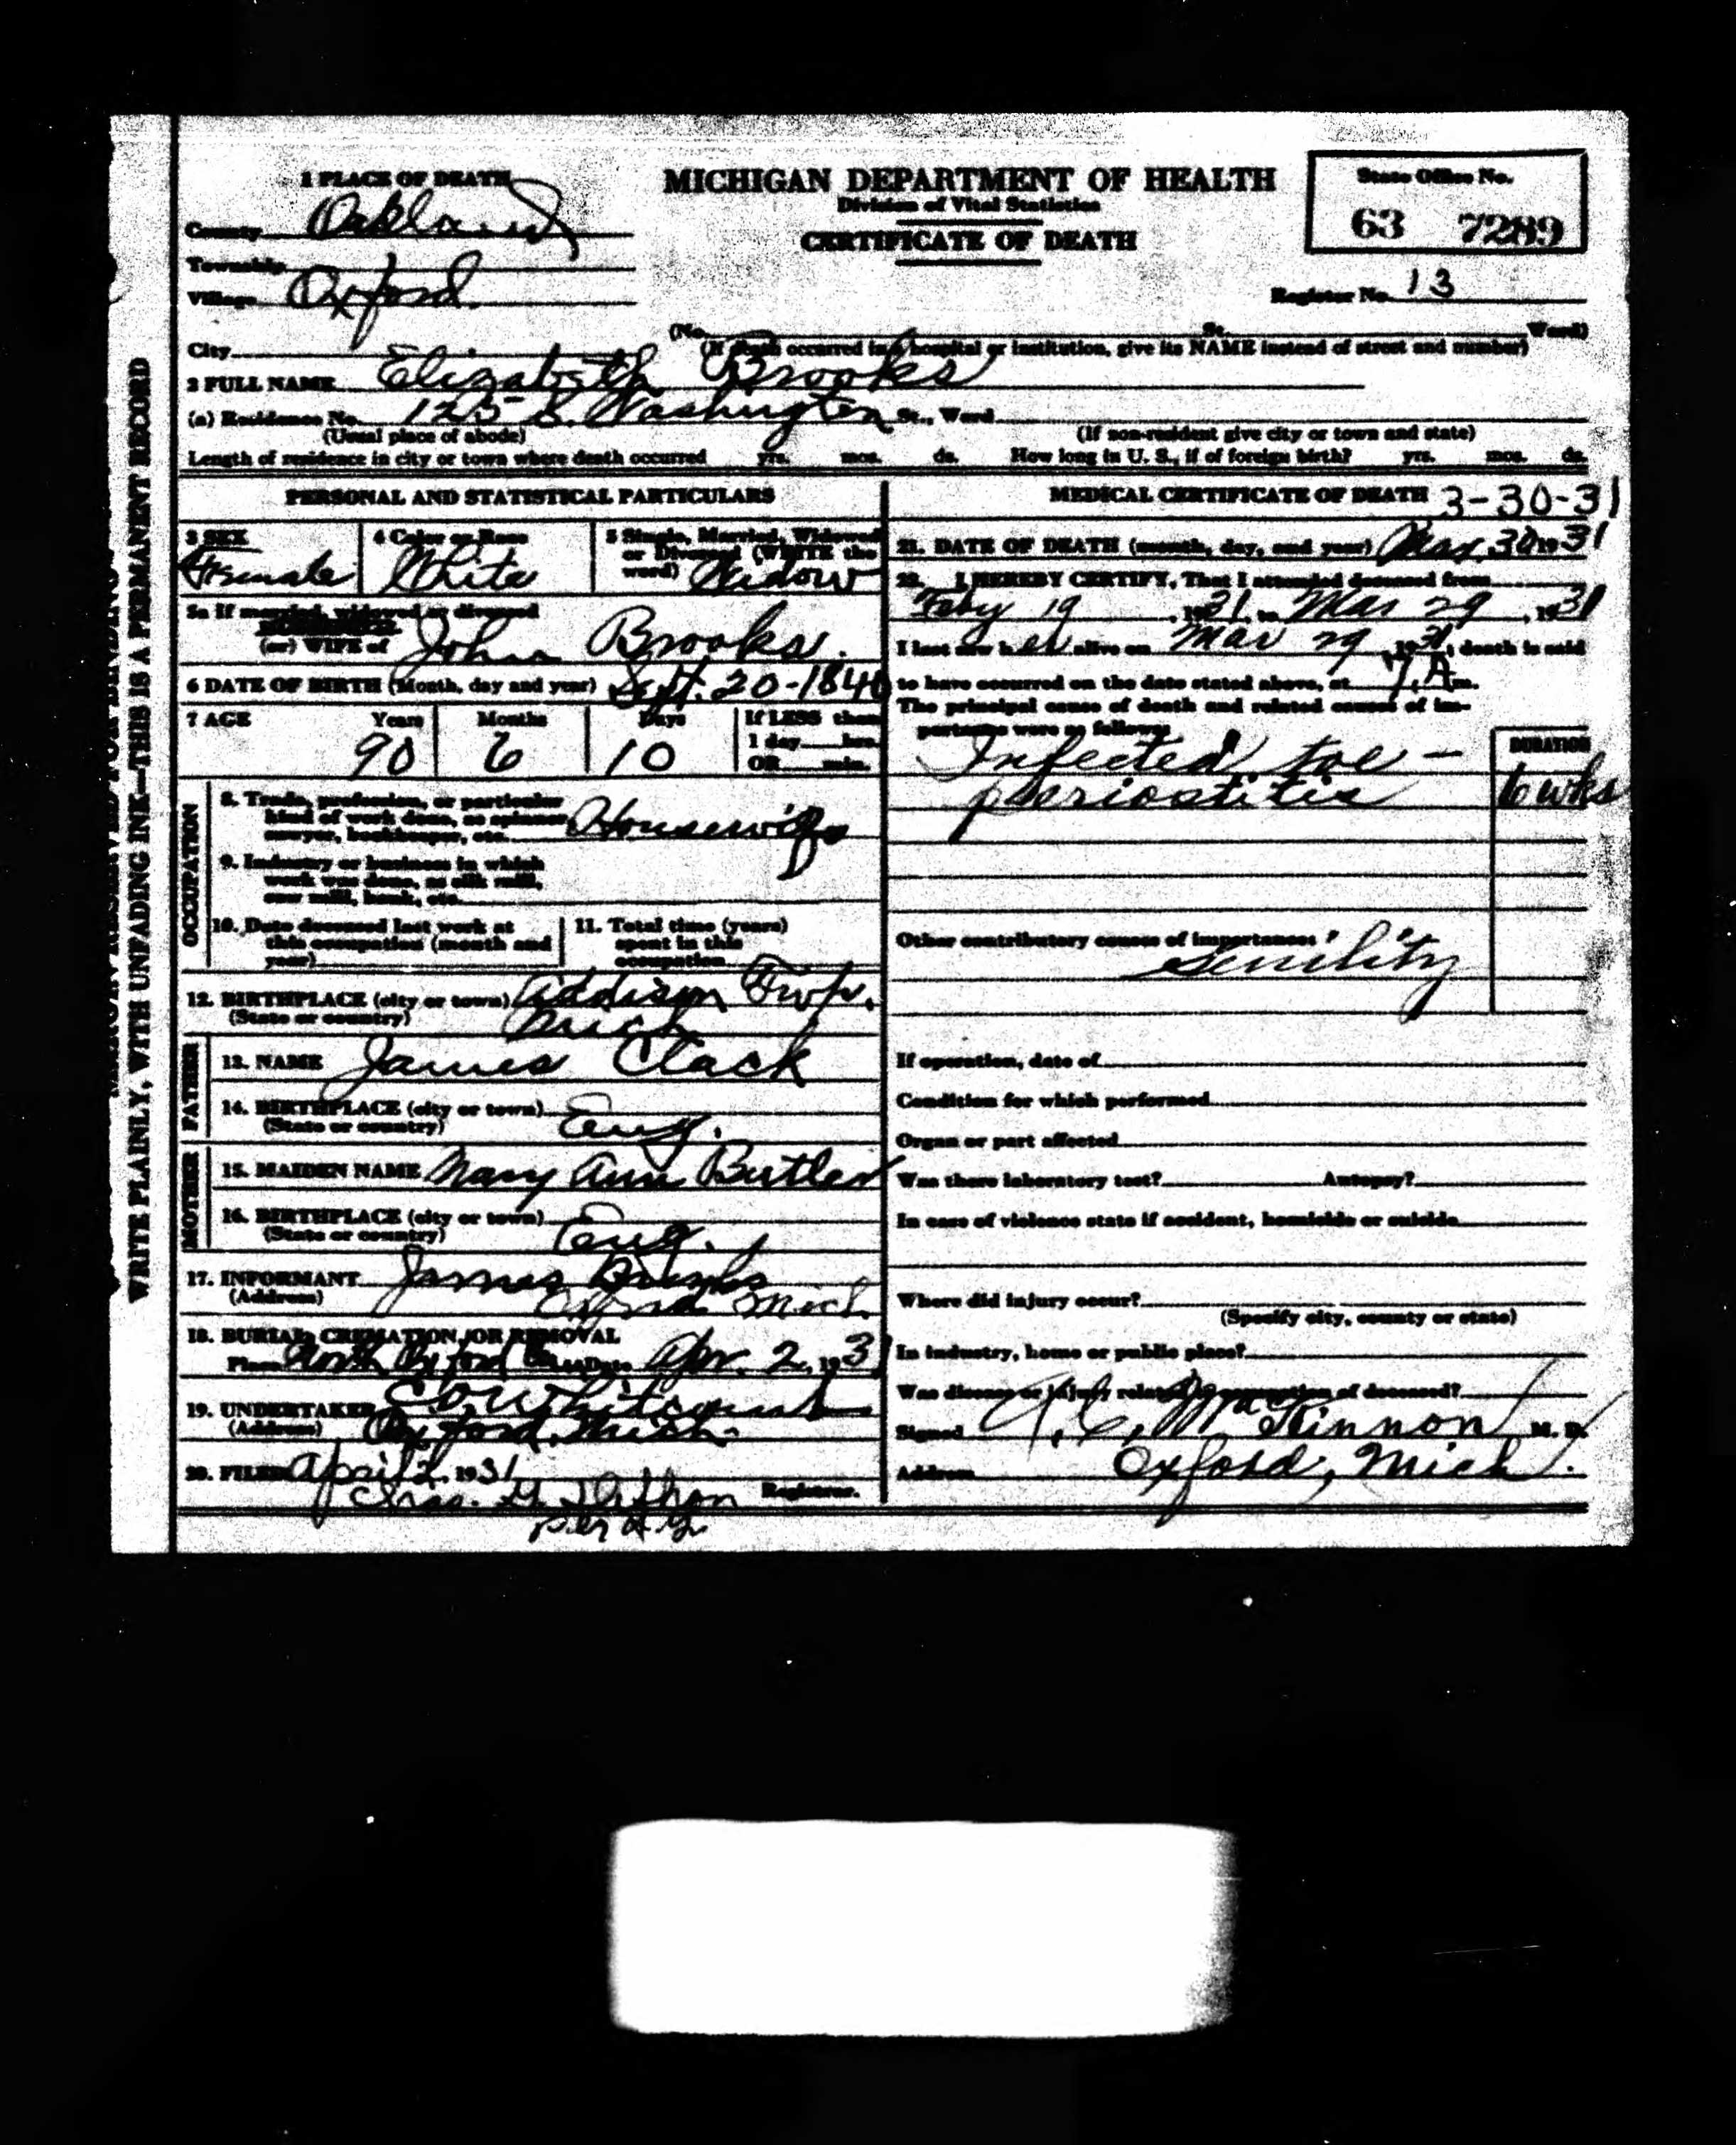 1 PLACE OF DEATH
County Oakland
Township
Village Oxford
City
MICHIGAN DEPARTMENT OF HEALTH
Division of Vital Statistics
CERTIFICATE OF DEATH
State Office No.
63 7289
Register No. 13
(No. St. Ward)
(If death occurred in a hospital or institution, give its NAME instead of street and number)
2 FULL NAME Elizabeth Brooks
(a) Residence No. 125 S. Washington St., Ward
(Usual place of abode)
(If non-resident give city or town and state)
Length of residence in city or town where death occurred yrs. mos. ds. How long in U. S., if of foreign birth? yrs. mos. ds.
WRITE PLAINLY, WITH UNFADING INK—THIS IS A PERMANENT RECORD
PERSONAL AND STATISTICAL PARTICULARS
3 SEX
Female
4 Color or Race
White
5 Single, Married, Widowed
or Divorced (WRITE the
word) Widow
5a If married, widowed or divorced
(or) WIFE of John Brooks.
6 DATE OF BIRTH (Month, day and year) Sept. 20-1840
7 AGE Years Months Days If LESS than
1 day hrs.
OR min.
90 6 10
OCCUPATION
8. Trade, profession, or particular
kind of work done, as spinner,
sawyer, bookkeeper, etc. Housewife
9. Industry or business in which
work was done, as silk mill,
saw mill, bank, etc.
10. Date deceased last work at
this occupation (month and
year)
11. Total time (years)
spent in this
occupation
12. BIRTHPLACE (city or town) Addison Twp.
(State or country) Mich
FATHER
13. NAME James Clack
14. BIRTHPLACE (city or town)
(State or country) Eng.
MOTHER
15. MAIDEN NAME Mary Ann Butler
16. BIRTHPLACE (city or town)
(State or country) Eng.
17. INFORMANT James Brooks
(Address) Oxford Mich.
18. BURIAL, CREMATION, OR REMOVAL
Place North Oxford Date Apr. 2, 1931
19. UNDERTAKER Whitcomb
(Address) Oxford, Mich.
20. FILED April 2, 1931
Chas. Registrar.
MEDICAL CERTIFICATE OF DEATH 3-30-31
21. DATE OF DEATH (month, day, and year) Mar. 30 1931
22. I HEREBY CERTIFY, That I attended deceased from
Feby 19, 1931, to Mar 29, 1931
I last saw her alive on Mar 29, 1931, death is said
to have occurred on the date stated above, at 7, A. m.
The principal cause of death and related causes of im-
portance were as follows:
DURATION
Infected toe -
periostitis 6 wks
Other contributory causes of importance:
Senility
If operation, date of
Condition for which performed
Organ or part affected
Was there laboratory test? Autopsy?
In case of violence state if accident, homicide or suicide
Where did injury occur?
(Specify city, county or state)
In industry, home or public place?
Was disease or injury related to occupation of deceased?
Signed MacKinnon M. D.
Address Oxford, Mich.